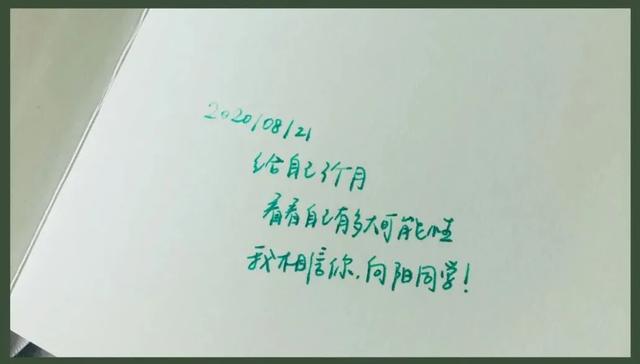 2020/08/21
给自己3个月
看看自己有多大可能性
我相信你,向阳同学!